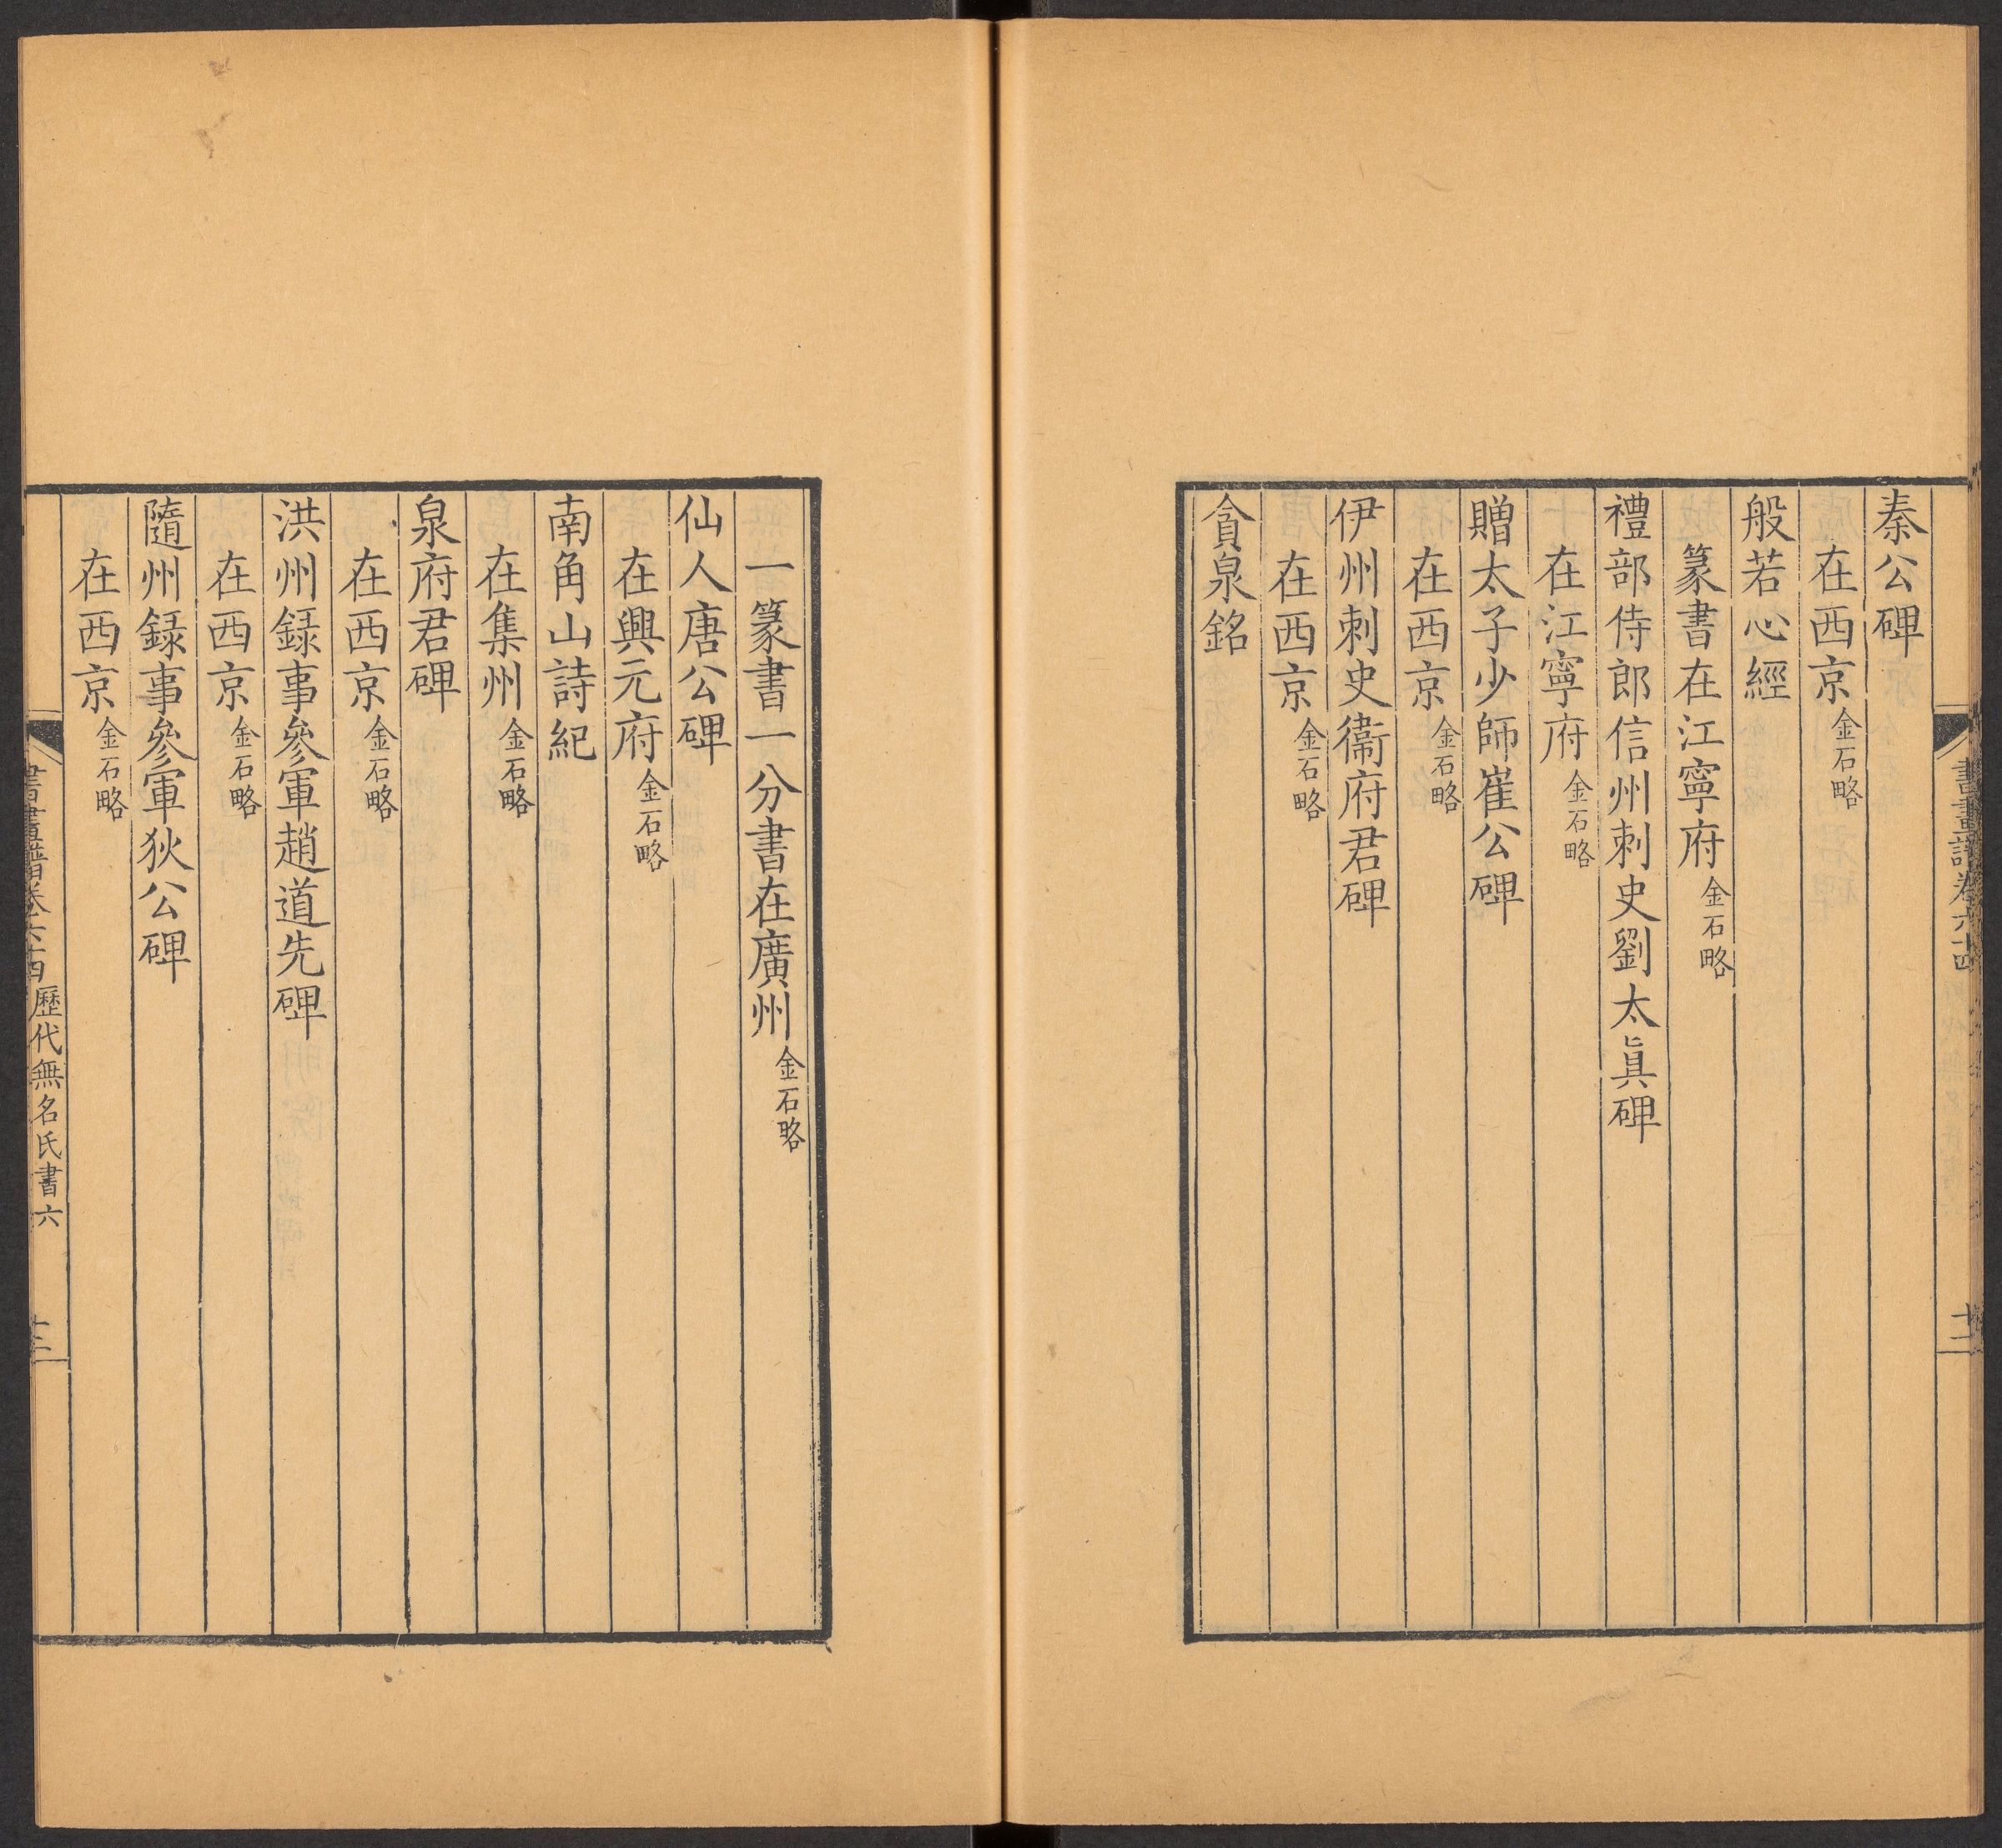 書畫譜卷六十四
十二
秦公碑
在西京金石略
般若心經
篆書在江寧府金石略
禮部侍郎信州刺史劉太眞碑
在江寧府金石略
贈太子少師崔公碑
在西京金石略
伊州刺史衞府君碑
在西京金石略
貪泉銘
一篆書一分書在廣州金石略
仙人唐公碑
在興元府金石略
南角山詩紀
在集州金石略
泉府君碑
在西京金石略
洪州録事參軍趙道先碑
在西京金石略
隨州録事參軍狄公碑
在西京金石略
書畫譜卷六十四 歷代無名氏書六
十三